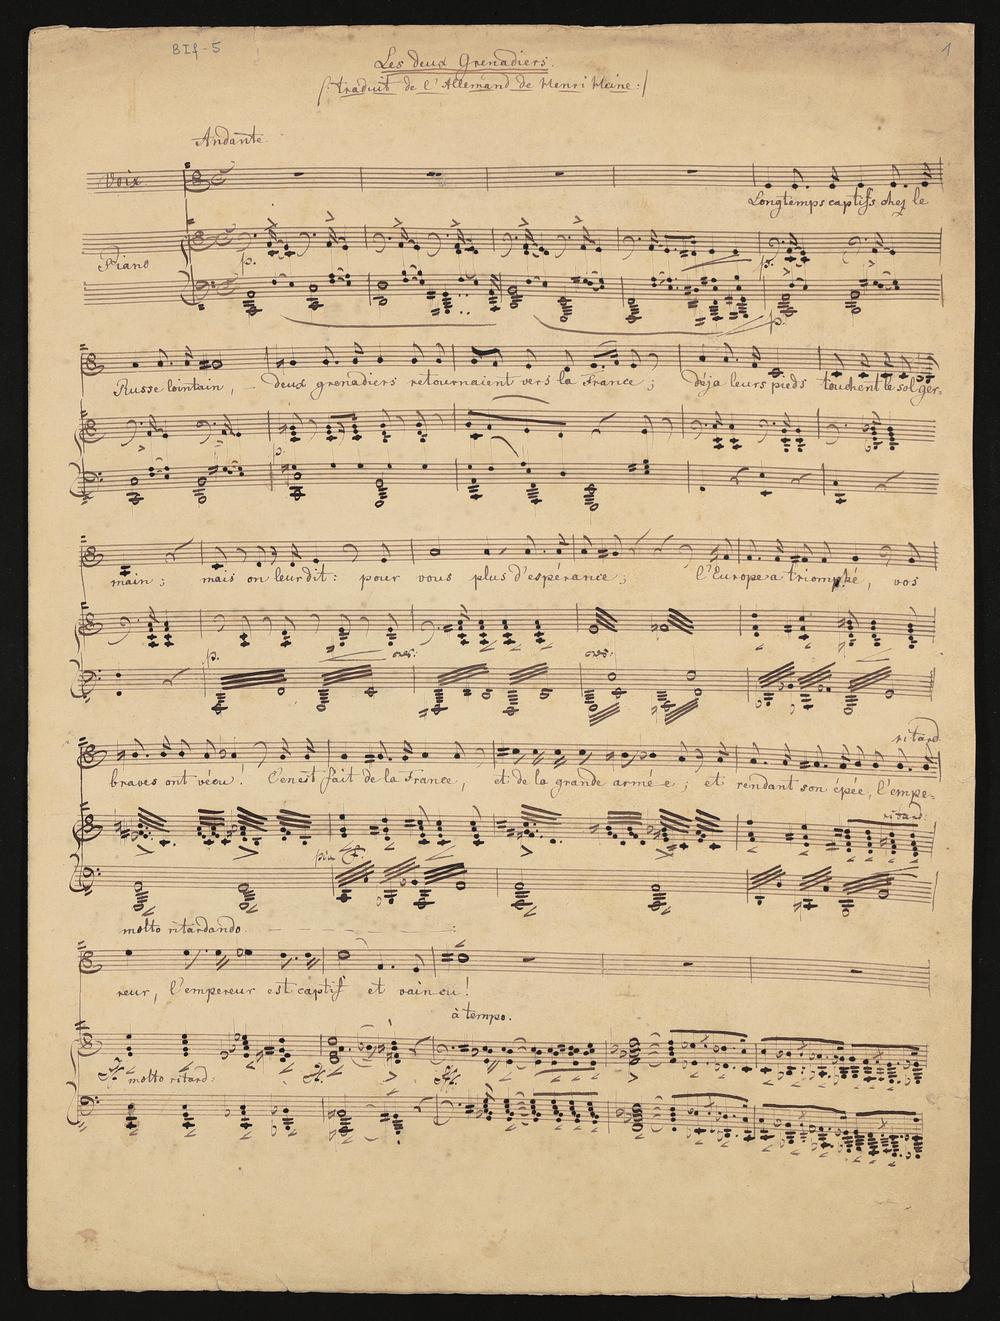 BI f-5
1
Les deux Grenadiers.
/: traduit de l'Allemand de Henri Heine :/
Andante.
Voix
Longtemps captifs chez le
Piano
p.
p.
p.
Russe lointain, deux grenadiers retournaient vers la France; déja leurs pieds touchent le sol ger-
p
main; mais on leur dit: pour vous plus d'espérance; l'Europe a triomphé, vos
p. cres: cres:
ritard
braves ont vécu! C'en est fait de la France, et de la grande armée; et rendant son épée, l'empe-
ritard:
più f.
molto ritardando
reur, l'empereur est captif et vaincu!
à tempo.
ff molto ritard: ff. ff.